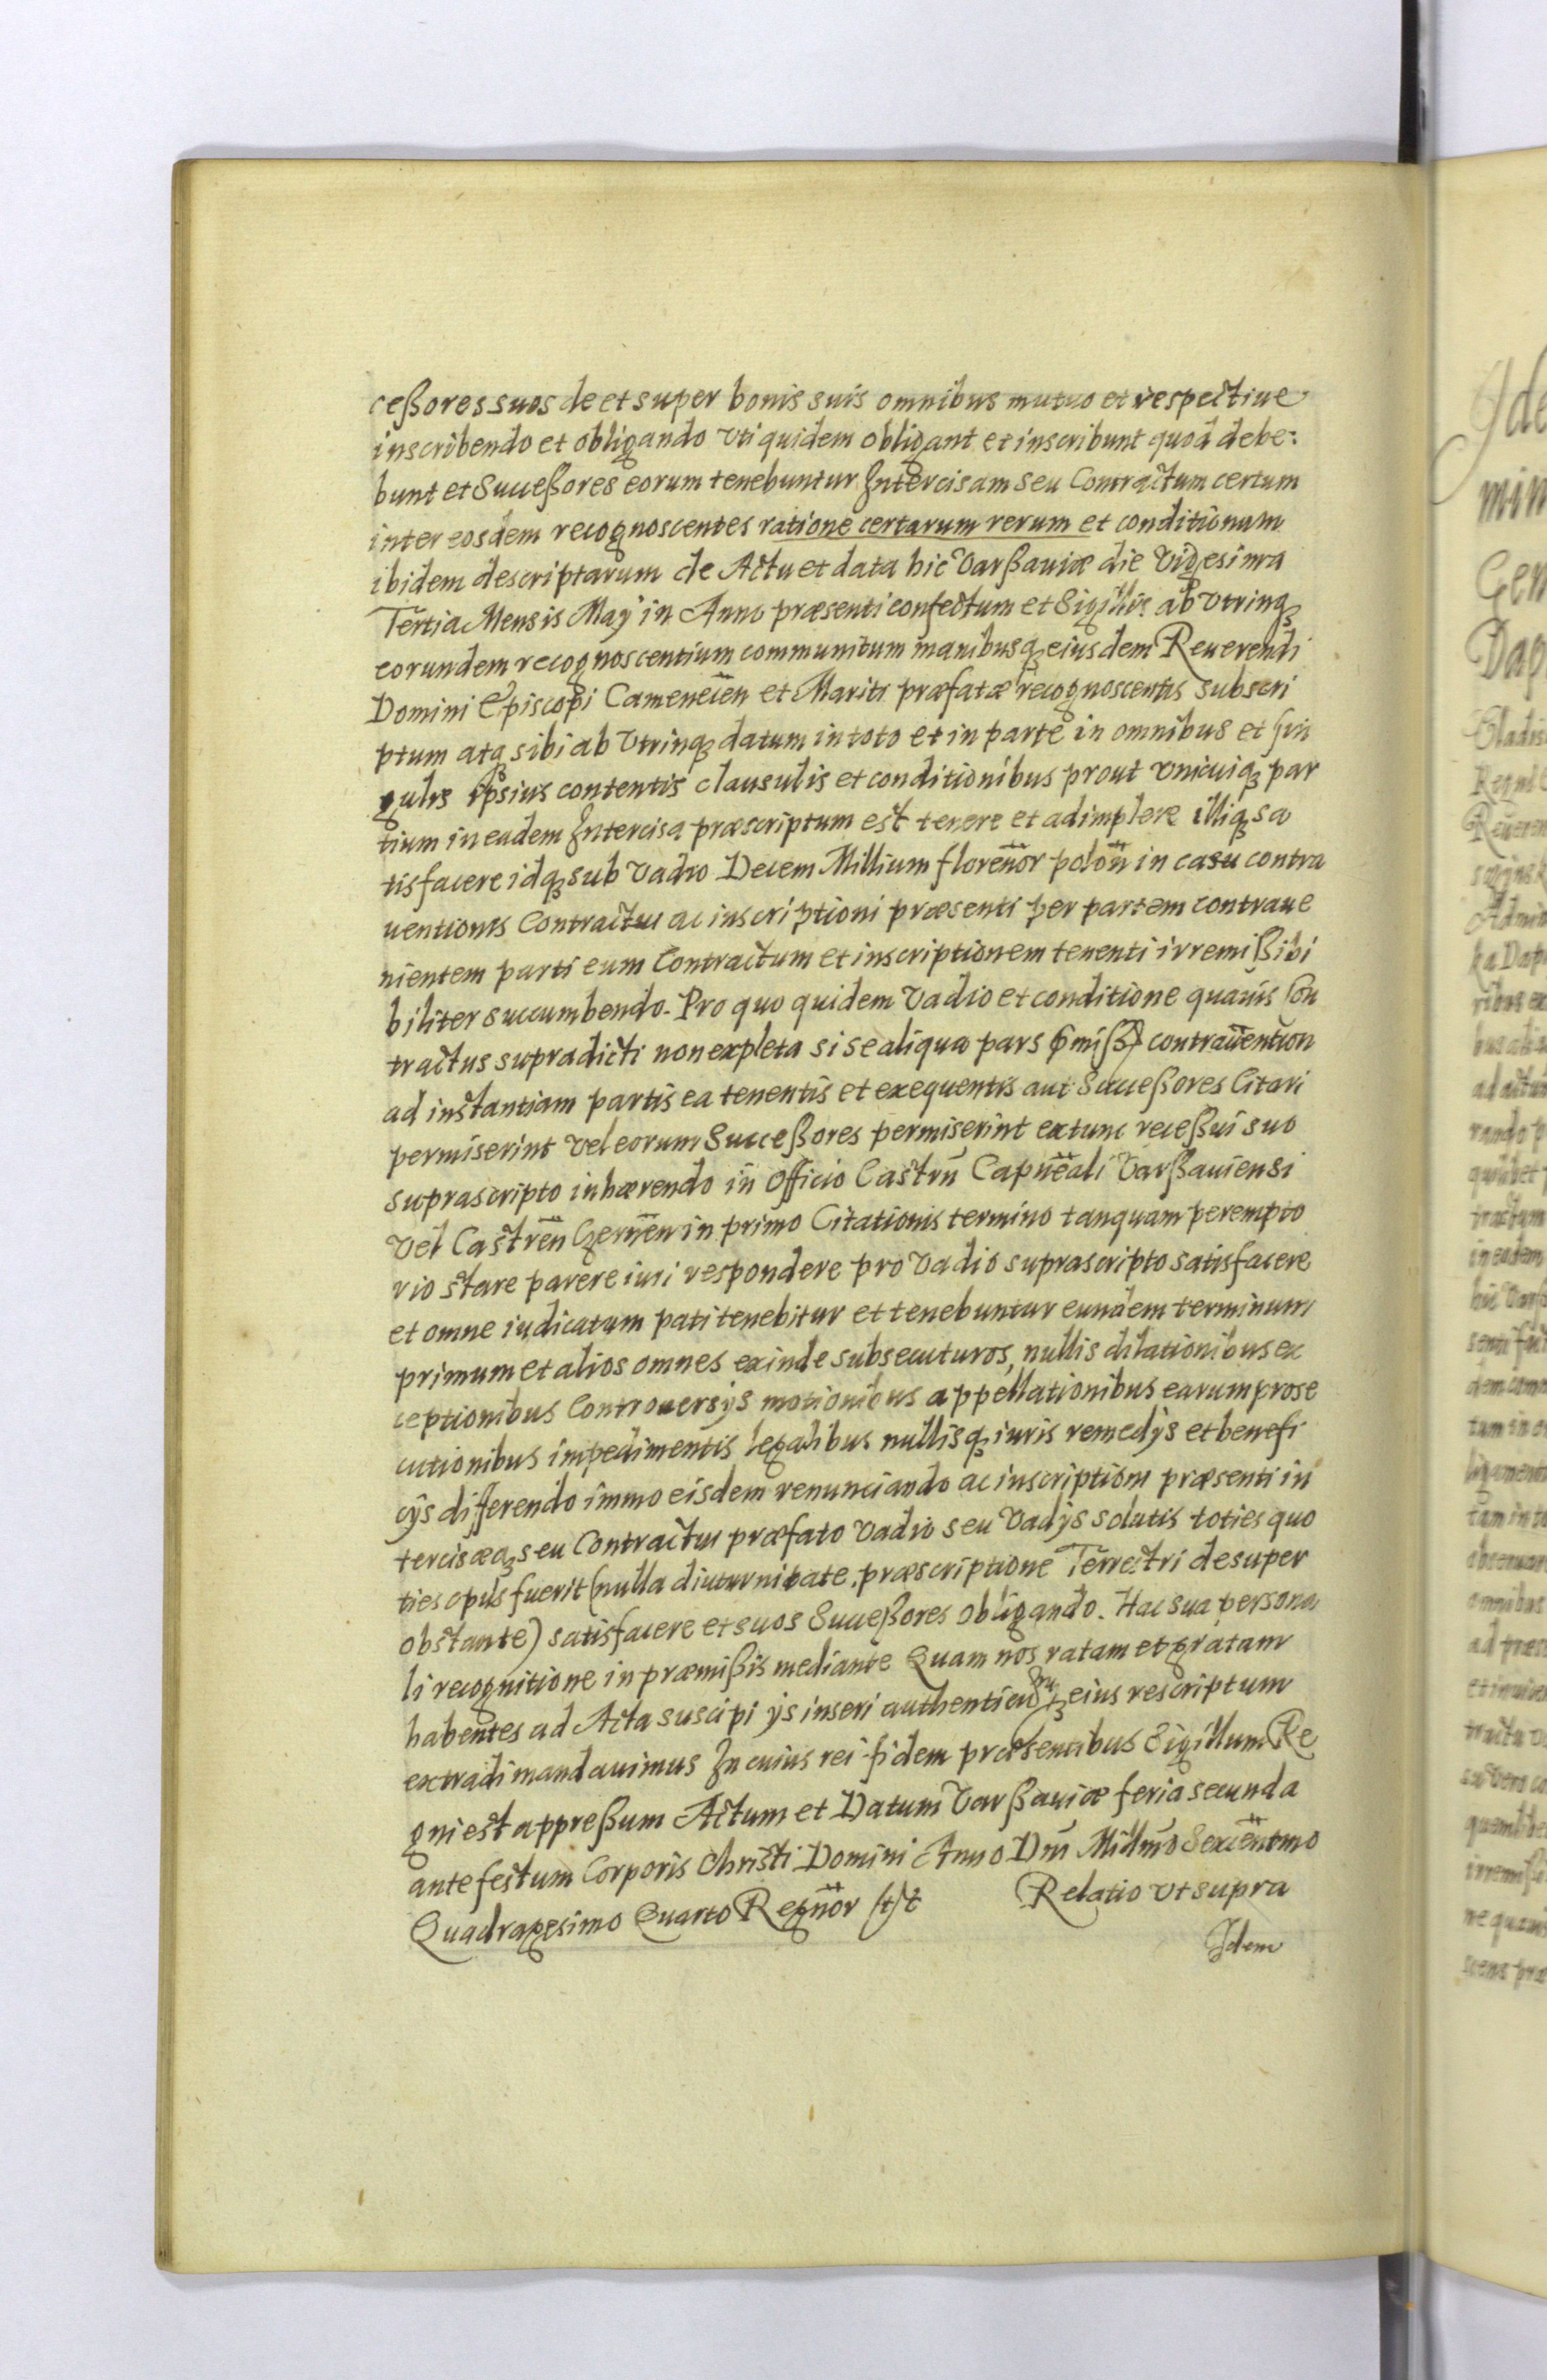 ceßores suos de et super bonis suis omnibus mutuo et respectiue
inscribendo et obligando vti quidem obligant et inscribunt quod debe-
bunt et Succeßores eorum tenebuntur Intercisam seu Contractum certum
inter eosdem recognoscentes ratione certarum rerum et conditionum
ibidem descriptarum de Actu et data hic Varßauiæ die Vigesima
Tertia Mensis Maÿ in Anno præsenti confectum et Sigillis ab vtrinqꝫ
eorundem recognoscentium communitum manibusqꝫ eiusdem Reuerendi
Domini Episcopi Camenecen̄ et Mariti præfatæ recognoscentis subscri
ptum atqꝫ sibi ab vtrinqꝫ datum in toto et in parte in omnibus et sin
gulis ipsius contentis clausulis et conditionibus prout vnicuiqꝫ par
tium in eadem Intercisa præscriptum est tenere et adimplere illiqꝫ sa
tisfacere idqꝫ sub vadio Decem Millium floren̄or polon̄ in casu contra
uentionis Contractui ac inscriptioni præsenti per partem contraue
nientem parti eum Contractum et inscriptionem tenenti irremißibi
biliter succumbendo. Pro quo quidem Vadio et conditione quauis Con
tractus supradicti non expleta si se aliqua pars contrauention
ad instantiam partis ea tenentis et exequentis aut Succeßores Citari
permiserint vel eorum Succeßores permiserint extunc receßui suo
suprascripto inhærendo in Officio Castrn̄ Capn̄eali Varßauiensi
vel Castren̄ Czernen̄ in primo Citationis termino tanquam perempto
rio stare parere iuri respondere pro Vadio suprascripto satisfacere
et omne iudicatum pati tenebitur et tenebuntur eundem terminum
primum et alios omnes exinde subsecuturos, nullis dilationibus ex
ceptionibus Controuersÿs motionibus appellationibus earum prose
cutionibus impedimentis legalibus nullisqꝫ iuris remedÿs et benefi
cÿs differendo immo eisdem renunciando ac inscriptioni præsenti in
tercisæqꝫ seu Contractui præfato Vadio seu Vadÿs solutis toties quo
ties opus fuerit (nulla diuturnitate, præscriptione Terrestri desuper
obstante) satisfacere et suos Succeßores obligando. Hac sua persona
li recognitione in præmißis mediante Quam nos ratam et gratam
habentes ad Acta suscipi ÿs inseri eius rescriptum
extradi mandauimus In cuius rei fidem præsentibus Sigillum Re
gni est appreßum Actum et Datum Varßauiæ feria secunda
ante festum Corporis Christi Domini Anno Dn̄i Millmō Sexcen̄tmo
Quadragesimo Quarto Regn̄or Relatio vt supra
Idem